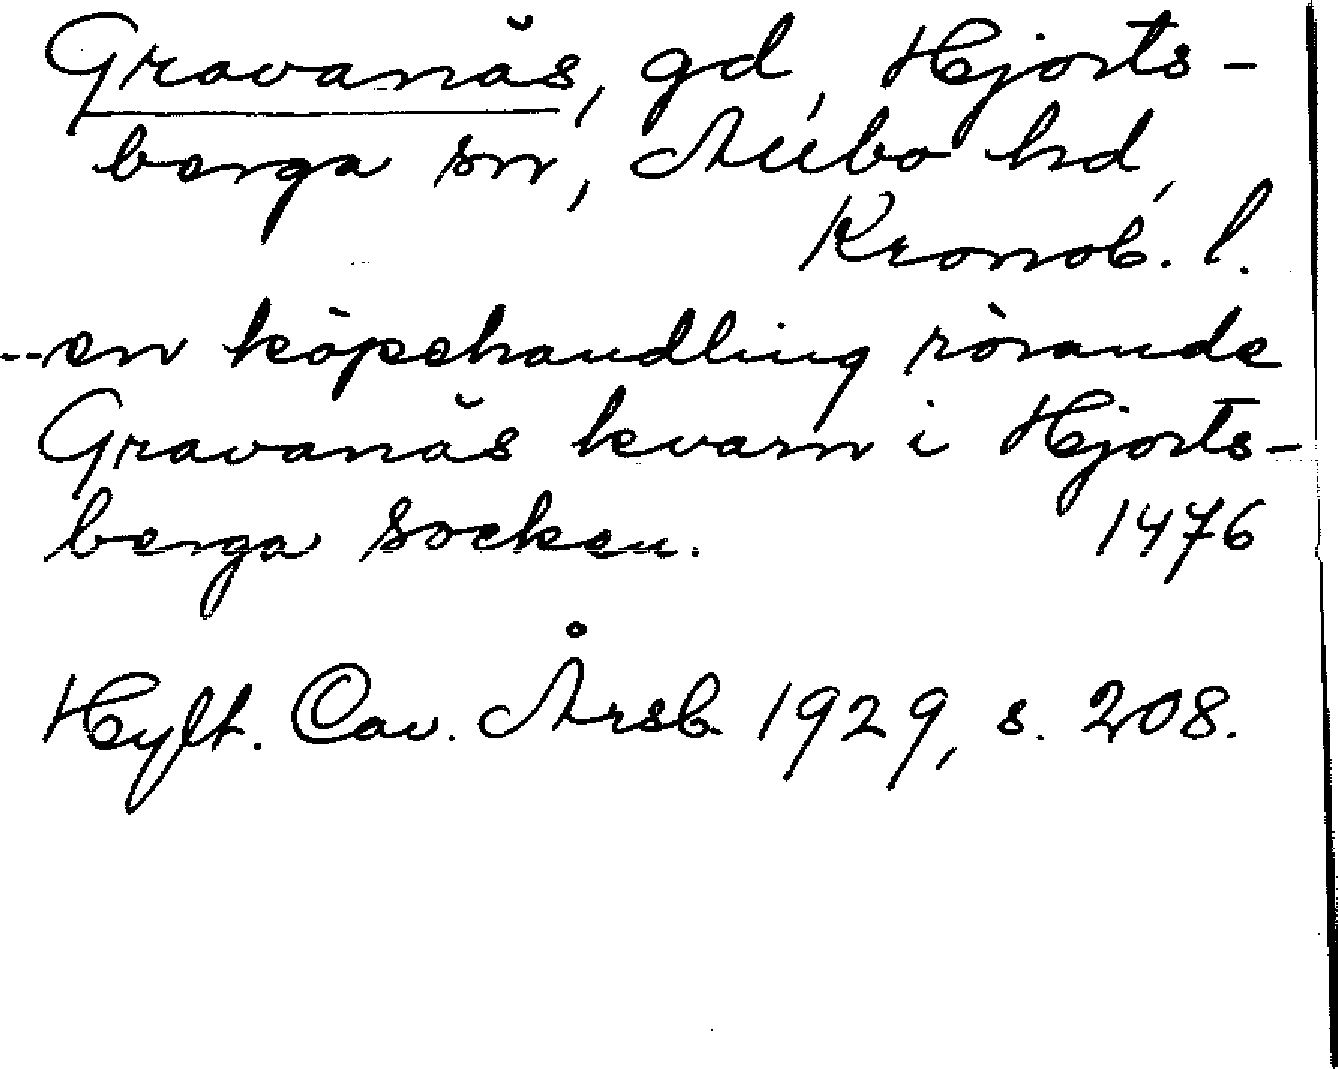 Gravanäs, gd, Hjorts-
berga sn, Allbo hd,
Kronob. l.
--en köpehandling rörande
Gravanäs kvarn i Hjorts-
berga socken. 1476
Hylt. Cav. Årsb. 1929, s. 208.